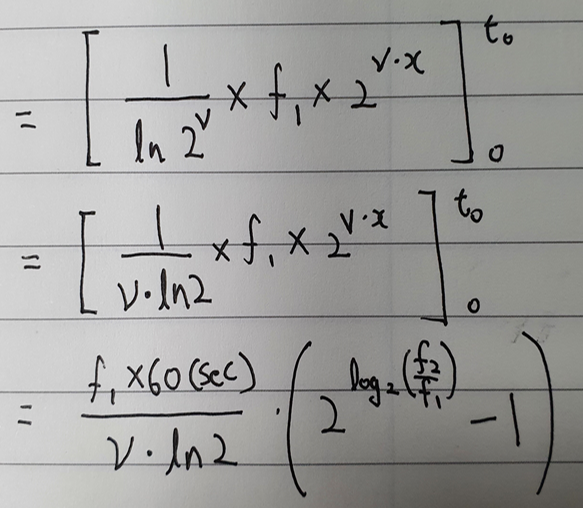 = [ 1/(ln 2^v) × f₁ × 2^(v·x) ]₀^(t₀)
= [ 1/(v·ln2) × f₁ × 2^(v·x) ]₀^(t₀)
= (f₁ × 60(sec))/(v·ln2) · ( 2^(log₂(f₂/f₁)) - 1 )